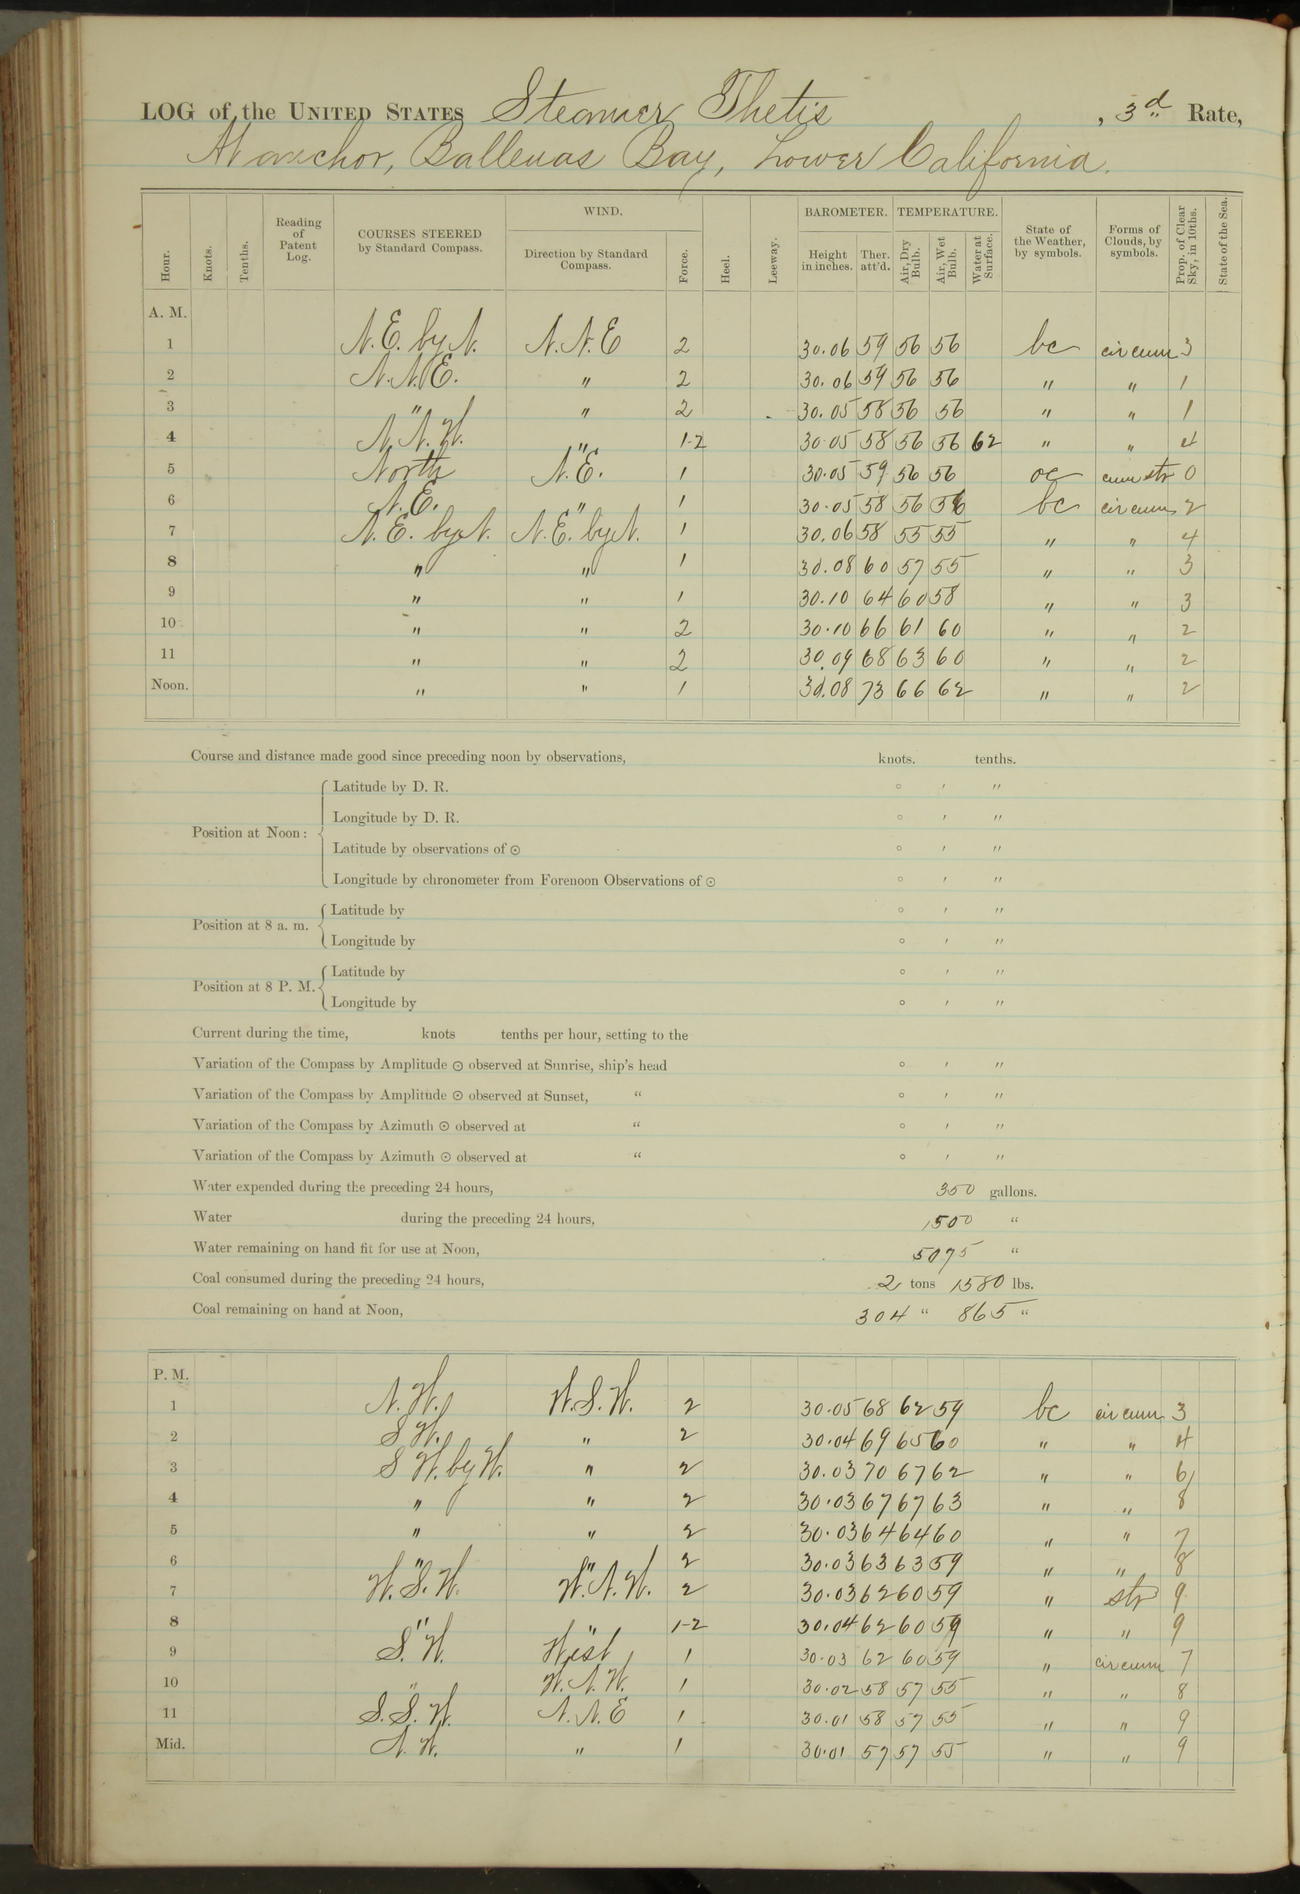 LOG of the UNITED STATES Steamer Thetis, 3d Rate,
At anchor, Ballenas Bay, Lower California.
WIND. BAROMETER. TEMPERATURE.
Hour. Knots. Tenths. Reading of Patent Log. COURSES STEERED by Standard Compass. Direction by Standard Compass. Force. Heel. Leeway. Height in inches. Ther. att'd. Air, Dry Bulb. Air, Wet Bulb. Water at Surface. State of the Weather, by symbols. Forms of Clouds, by symbols. Prop. of Clear Sky, in 10ths. State of the Sea.
A. M.
1 N.E. by N. N.N.E 2 30.06 59 56 56 bc cir cum 3
2 N.N.E. " 2 30.06 59 56 56 " " 1
3 " " 2 30.05 58 56 56 " " 1
4 N.N.W. " 1-2 30.05 58 56 56 62 " " 4
5 North N.E. 1 30.05 59 56 56 oc cum str 0
6 N.E. " 1 30.05 58 56 56 bc cir cum 2
7 N.E. by N. N.E. by N. 1 30.06 58 55 55 " " 4
8 " " 1 30.08 60 57 55 " " 3
9 " " 1 30.10 64 60 58 " " 3
10 " " 2 30.10 66 61 60 " " 2
11 " " 2 30.09 68 63 60 " " 2
Noon. " " 1 30.08 73 66 62 " " 2
Course and distance made good since preceding noon by observations, knots. tenths.
Position at Noon: Latitude by D. R. ° ′ ″
Longitude by D. R. ° ′ ″
Latitude by observations of ☉ ° ′ ″
Longitude by chronometer from Forenoon Observations of ☉ ° ′ ″
Position at 8 a. m. Latitude by ° ′ ″
Longitude by ° ′ ″
Position at 8 P. M. Latitude by ° ′ ″
Longitude by ° ′ ″
Current during the time, knots tenths per hour, setting to the
Variation of the Compass by Amplitude ☉ observed at Sunrise, ship's head ° ′ ″
Variation of the Compass by Amplitude ☉ observed at Sunset, " ° ′ ″
Variation of the Compass by Azimuth ☉ observed at " ° ′ ″
Variation of the Compass by Azimuth ☉ observed at " ° ′ ″
Water expended during the preceding 24 hours, 350 gallons.
Water during the preceding 24 hours, 1500 "
Water remaining on hand fit for use at Noon, 5075 "
Coal consumed during the preceding 24 hours, 2 tons 1580 lbs.
Coal remaining on hand at Noon, 304 " 865 "
P. M.
1 N.W. W.S.W. 2 30.05 68 62 59 bc cir cum 3
2 S W. " 2 30.04 69 65 60 " " 4
3 S W. by W. " 2 30.03 70 67 62 " " 6
4 " " 2 30.03 67 67 63 " " 8
5 " " 2 30.03 64 64 60 " " 7
6 " " 2 30.03 63 63 59 " " 8
7 W.S.W. W.N.W. 2 30.03 62 60 59 " str 9
8 " " 1-2 30.04 62 60 59 " " 9
9 S.W. West 1 30.03 62 60 59 " cir cum 7
10 " W.N.W. 1 30.02 58 57 55 " " 8
11 S.S.W. N.N.E 1 30.01 58 57 55 " " 9
Mid. N.W. " 1 30.01 57 57 55 " " 9